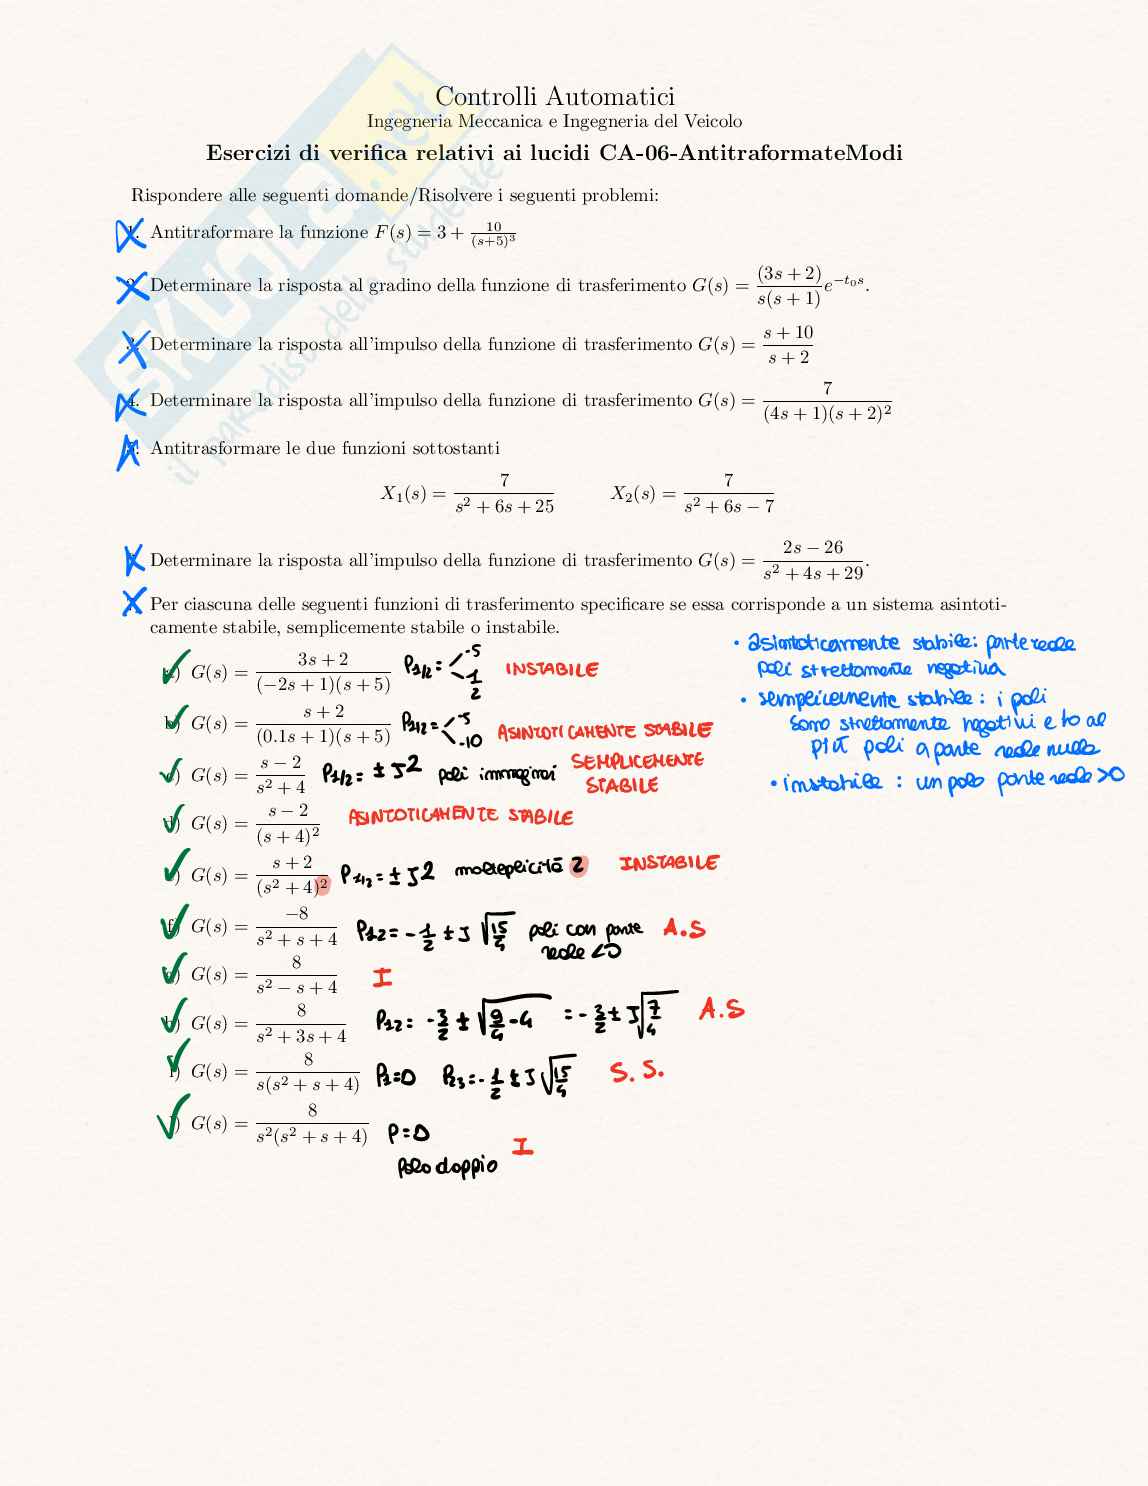 Controlli Automatici
Ingegneria Meccanica e Ingegneria del Veicolo
Esercizi di verifica relativi ai lucidi CA-06-AntitraformateModi
Rispondere alle seguenti domande/Risolvere i seguenti problemi:
1. Antitraformare la funzione F(s) = 3 + 10/(s+5)^3
2. Determinare la risposta al gradino della funzione di trasferimento G(s) = (3s + 2)/(s(s + 1)) e^{-t_0 s}.
3. Determinare la risposta all'impulso della funzione di trasferimento G(s) = (s + 10)/(s + 2)
4. Determinare la risposta all'impulso della funzione di trasferimento G(s) = 7/((4s + 1)(s + 2)^2)
5. Antitrasformare le due funzioni sottostanti
X_1(s) = 7/(s^2 + 6s + 25) X_2(s) = 7/(s^2 + 6s - 7)
Determinare la risposta all'impulso della funzione di trasferimento G(s) = (2s - 26)/(s^2 + 4s + 29).
Per ciascuna delle seguenti funzioni di trasferimento specificare se essa corrisponde a un sistema asintoti-
camente stabile, semplicemente stabile o instabile.
• asintoticamente stabile: parte reale
poli strettamente negativa
• semplicemente stabile: i poli
sono strettamente negativi e ho al
più poli a parte reale nulla
• instabile: un polo parte reale >0
a) G(s) = (3s + 2)/((-2s + 1)(s + 5)) P1/2 = -5 1/2 INSTABILE
b) G(s) = (s + 2)/((0.1s + 1)(s + 5)) P1/2 = -5 -10 ASINTOTICAMENTE STABILE
c) G(s) = (s - 2)/(s^2 + 4) P1/2 = ± J2 poli immaginari SEMPLICEMENTE STABILE
d) G(s) = (s - 2)/(s + 4)^2 ASINTOTICAMENTE STABILE
e) G(s) = (s + 2)/(s^2 + 4)^2 P1/2 = ± J2 molteplicità 2 INSTABILE
f) G(s) = -8/(s^2 + s + 4) P12 = -1/2 ± J √(15/4) poli con parte reale <0 A.S
g) G(s) = 8/(s^2 - s + 4) I
h) G(s) = 8/(s^2 + 3s + 4) P12 = -3/2 ± √(9/4 - 4) = -3/2 ± J√(7/4) A.S
i) G(s) = 8/(s(s^2 + s + 4)) P1=0 P23 = -1/2 ± J √(15/4) S.S.
l) G(s) = 8/(s^2(s^2 + s + 4)) P=0
polo doppio I
SKUOLA.net
il paradiso dello studente